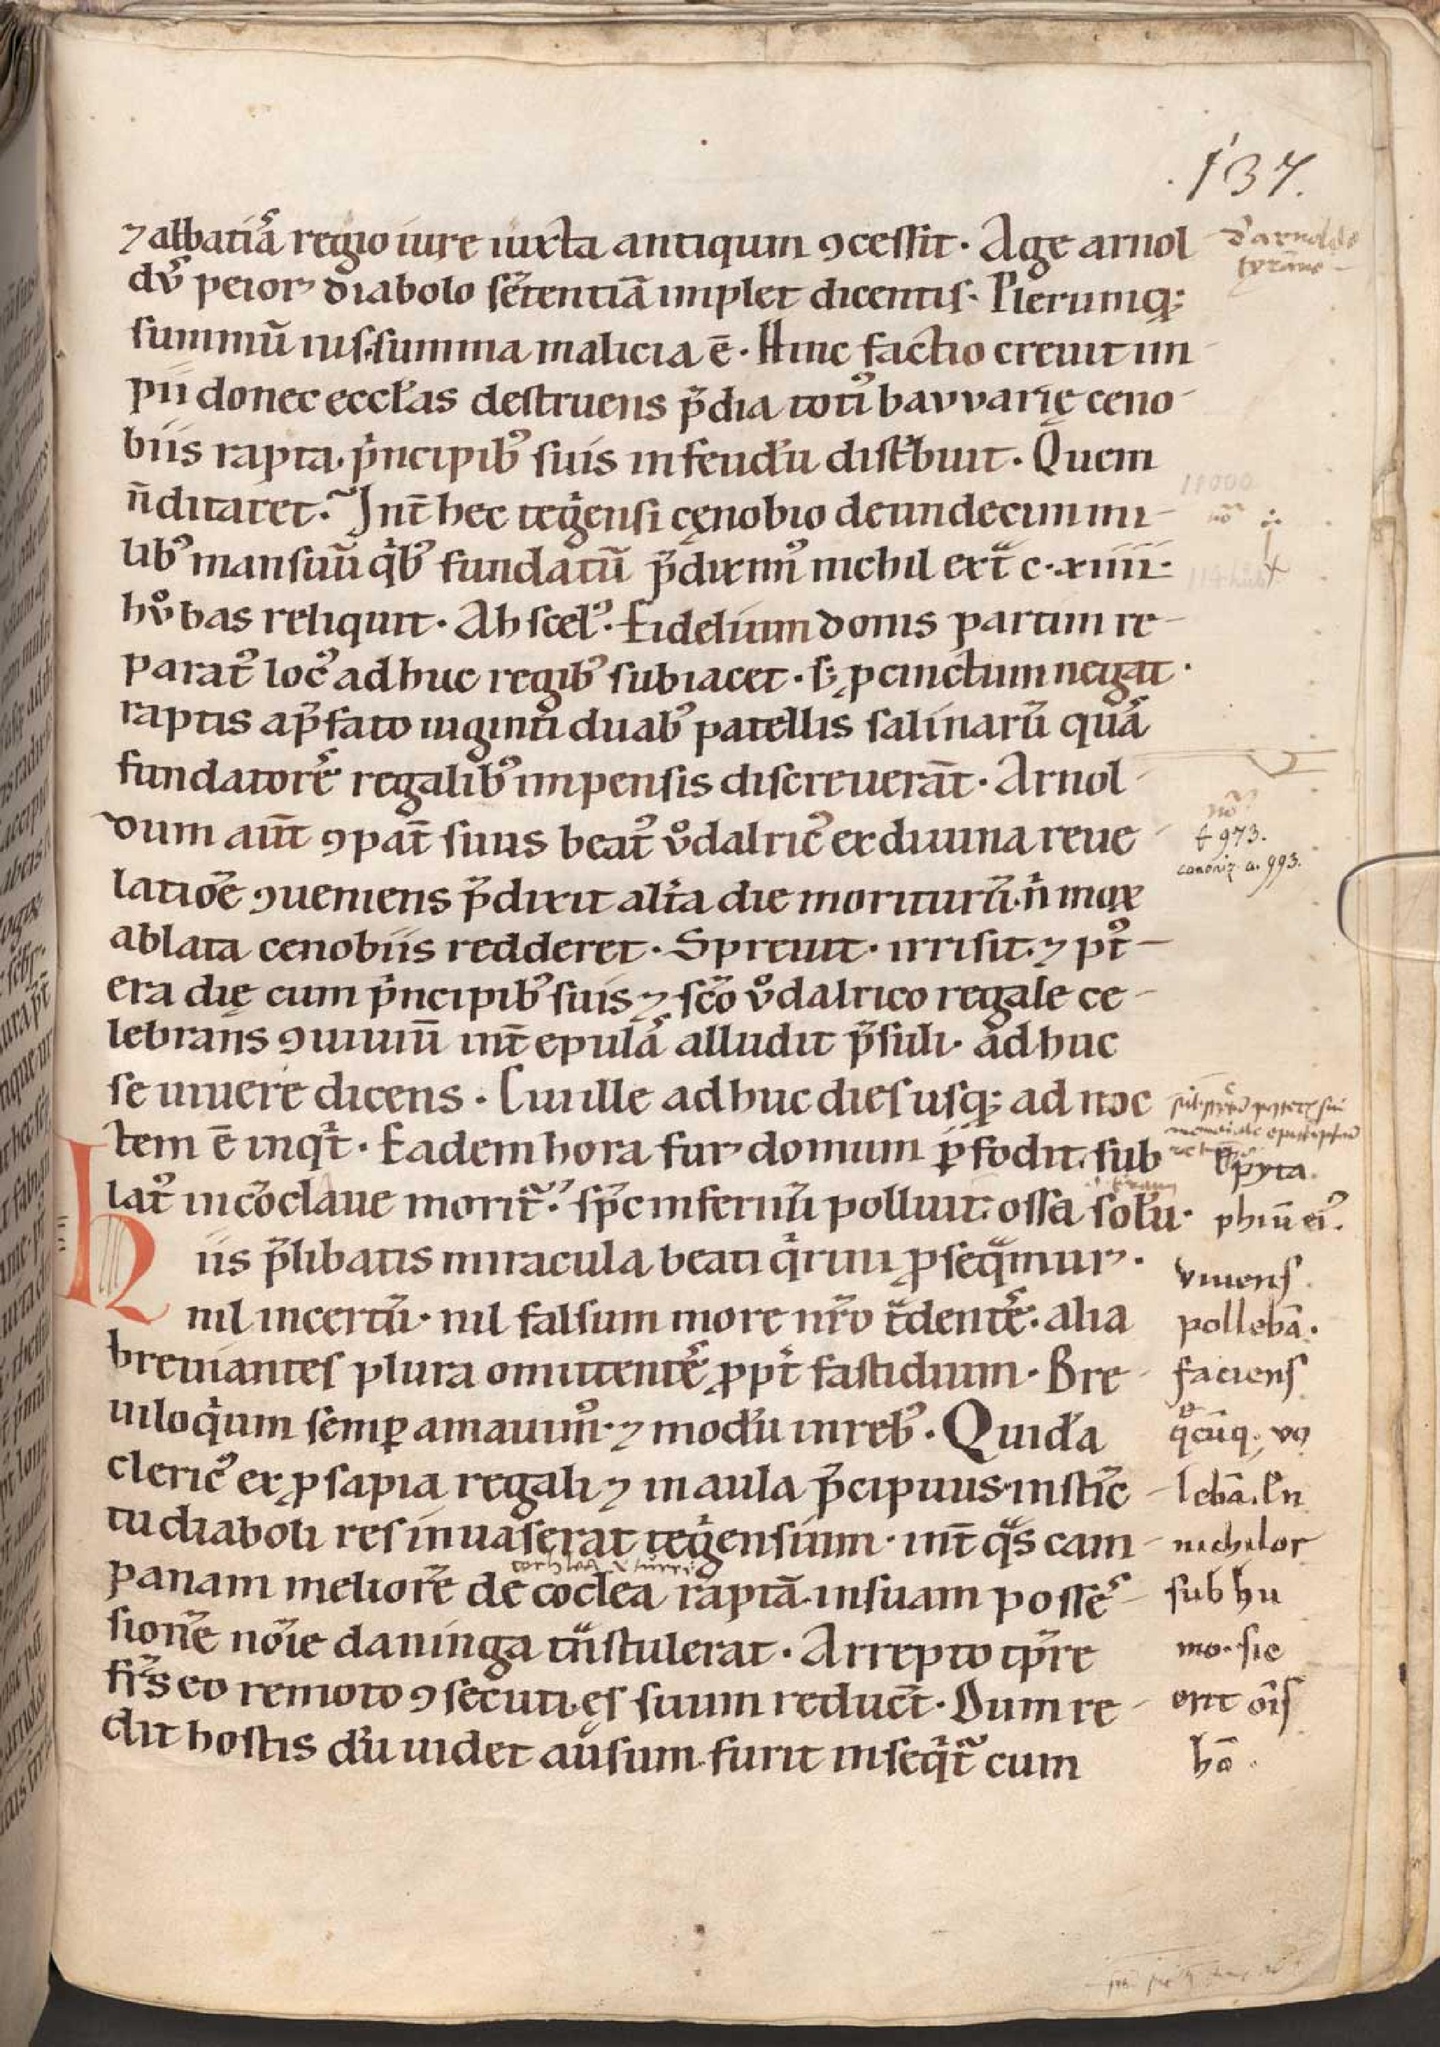 137.
⁊ abbatiā regio iure iuxta antiqum ꝯcessit. Age arnol
dꝰ peior diabolo sētentiā implet dicentis. Plerumq;
summū ius summa malicia ē. Hinc factio creuit im
pii donec eccłas destruens p̄dia totiꝰ bavvarię ceno
biis rapta. pͥncipibꝰ suis in feudū distͥbuit. Quem
n̄ ditaret? Int̄ hec tegͥensi cęnobio de undecim mi
libꝰ mansuū qͥbꝰ fundatū p̄diximꝰ nichil ext̄ c. xiiii.
hůbas reliquit. Ab scelꝰ. Fidelium donis partim re
paratꝰ locꝰ adhuc regibꝰ subiacet. s; ꝓcinctum negat.
raptis a p̄fato uiginti duabꝰ patellis salinarū quā
fundatorē regalibꝰ impensis discreuerāt. Arnol
dum aūt ꝯpat̄ suus beatꝰ ůdalricꝰ ex diuina reue
latiōe ꝯueniens p̄dixit alͥa die moriturū. n̄ mox
ablata cenobiis redderet. Spreuit. irrisit. ⁊ pꝰt
era dię cum pͥncipibꝰ suis ⁊ sc̄o ůdalrico regale ce
lebrans ꝯuiuiū int̄ epulā alludit p̄suli. adhuc
se uiuere dicens. Cui ille adhuc dies usq; ad noc
tem ē inqͥt. Eadem hora fur domum ꝑfodit. sub
latꝰ in cōclaue moritꝰ. sp̄c infernū polluit. ossa solū.
Hiis p̄libatis miracula beati qͥrini ꝓseqͣmur.
nil incertū. nil falsum more nr̄o tͣdentē. alia
breuiantes plura omittentē ꝓpt̄ fastidium. Bre
uiloqͥum semꝑ amauimꝰ. ⁊ modū in rebꝰ. Quidā
clericꝰ ex ꝓsapia regali ⁊ in aula p̄cipuus. instīc
tu diaboli res inuaserat tegͥensium. int̄ qͣs cam
panam meliorē de coclea raptā. in suam possē
sionē nōie daninga tͣnstulerat. Arrepto tp̄re
fr̄s eo remoto ꝯsecuti. ęs suum reduct̄. Dum re
dit hostis dū uidet ausum. furit inseqͥt̄ cum
† 973.
canoniz. a. 993.
Epyta.
phiū eiꝰ.
viuens
pollebā.
faciens
qͦcūq. vo
lebā. En
nichilor
sub hu
mo. sic
erit ōis
hō.